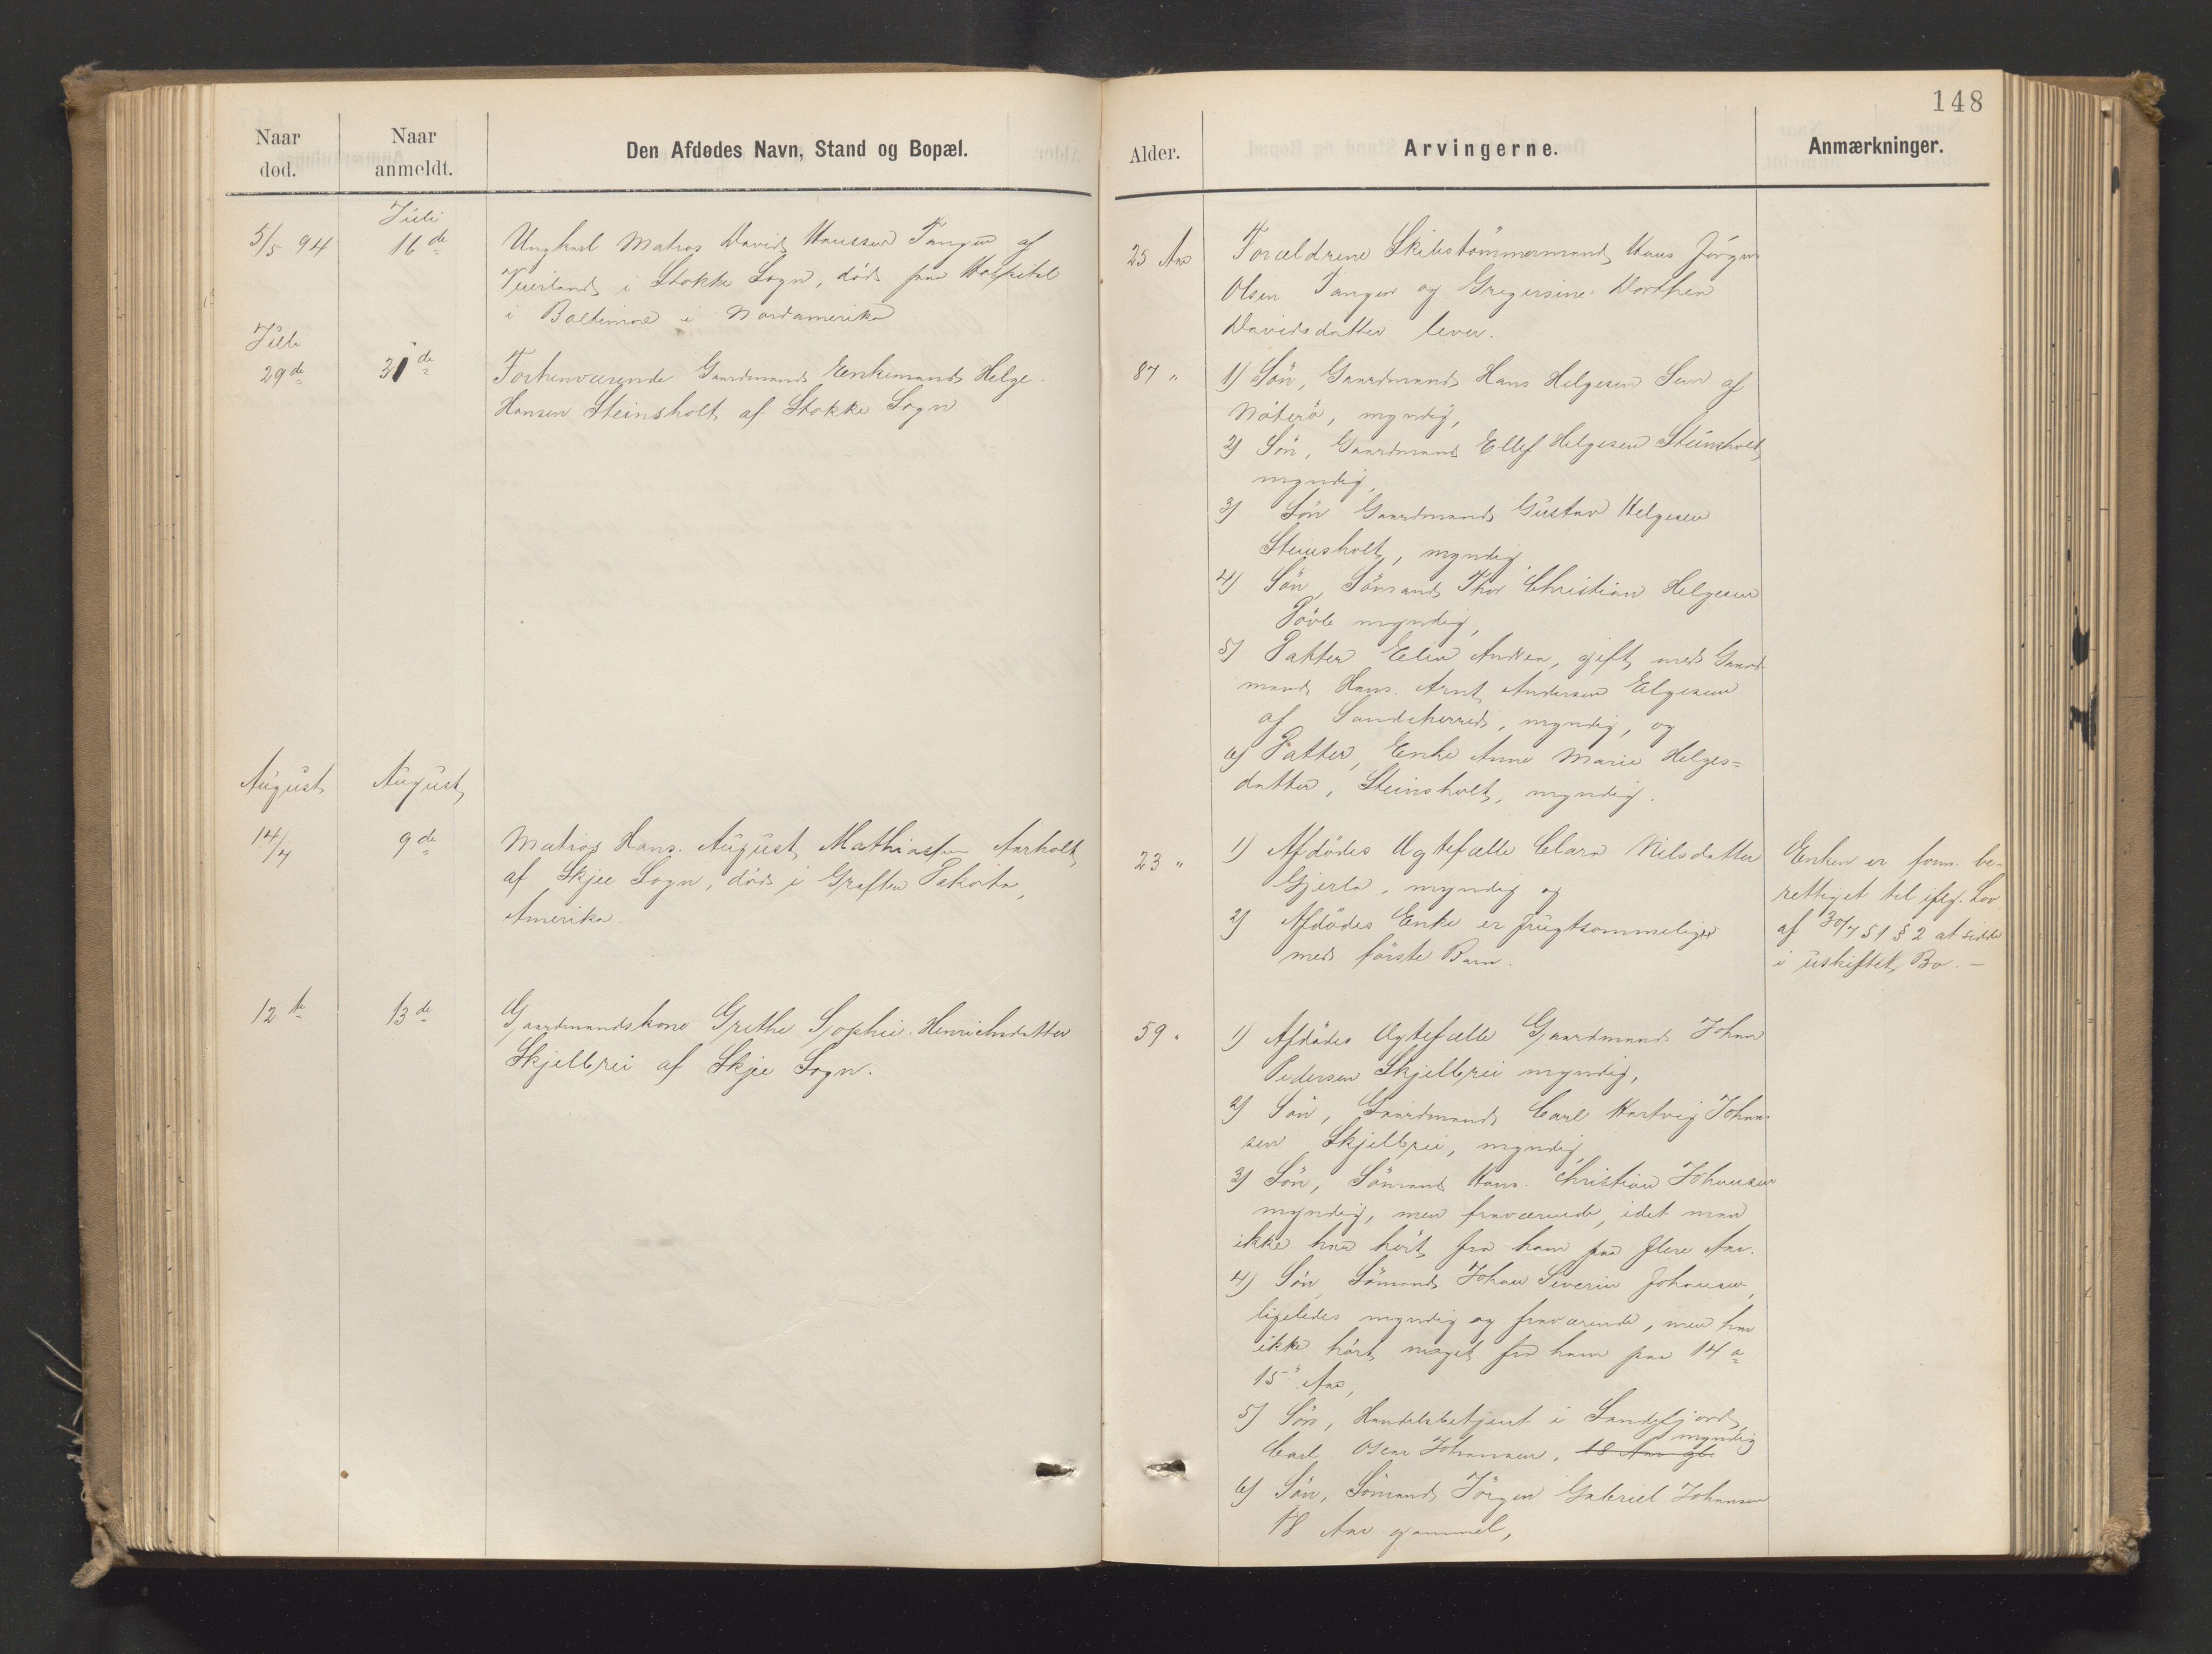 148
Naar død.
Naar anmeldt.
Den Afdødes Navn, Stand og Bopæl.
Alder.
Arvingerne.
Anmærkninger.
Juli
5/5 94
16de
Ungkarl Matros David Hanssen Tangen af
Veierland i Stokke Sogn, død paa Hospital
i Baltimore i Nordamerika
25 Aar
Forældrene Skibstömmermand Hans Jörgen
Olsen Tangen og Gregersine Dorthea
Davidsdatter lever.
Juli
29de
31de
Forhenværende Gaardmand Enkemand Helge
Hansen Steinsholt af Stokke Sogn
87 "
1) Sön, Gaardmand Hans Helgesen Sem af
Nöterö, myndig,
2) Sön, Gaardmand Ellef Helgesen Steinsholt
myndig,
3) Sön Gaardmand Gustav Helgesen
Steinsholt, myndig
4) Sön, Sömand Thor Christian Helgesen
myndig,
5) Datter Elen Andrea, gift med Gaard-
mand Hans Arnt Andersen Elgesem
af Sandeherred, myndig, og
6) Datter, Enke Anne Marie Helges=
datter, Steinsholt, myndig.
August
August
14/7
9de
Matros Hans August Mathiassen Aarholt
af Skjee Sogn, död i Grafton Dakota,
Amerika.
23 "
1) Afdödes Ægtefælle Clara Nilsdatter
Gjerla, myndig og
2) Afdödes Enke er frugtsommelig
med förste Barn.
Enken er form. be-
rettiget til iflg. Lov
af 30/7 51 § 2 at sidde
i uskiftet Bo. —
12te
13de
Gaardmandskone Grethe Sophie Henrichsdatter
Skjelbrei af Skjee Sogn.
59 "
1) Afdödes Ægtefælle Gaardmand Johan
Pedersen Skjelbrei myndig,
2) Sön, Gaardmand Carl Hartvig Johan-
sen Skjelbrei, myndig,
3) Sön, Sömand Hans Christian Johansen
myndig, men fraværende, idet man
ikke har hört fra ham paa flere Aar.
4) Sön, Sömand Johan Severin Johansen,
ligeledes myndig og fraværende, men har
ikke hört noget fra ham paa 14 a
15 Aar,
5) Sön, Handelsbetjent i Sandefjord,
Carl Oscar Johansen, 18 Aar gl. myndig
6) Sön, Sömand Jörgen Gabriel Johansen
18 Aar gammel,